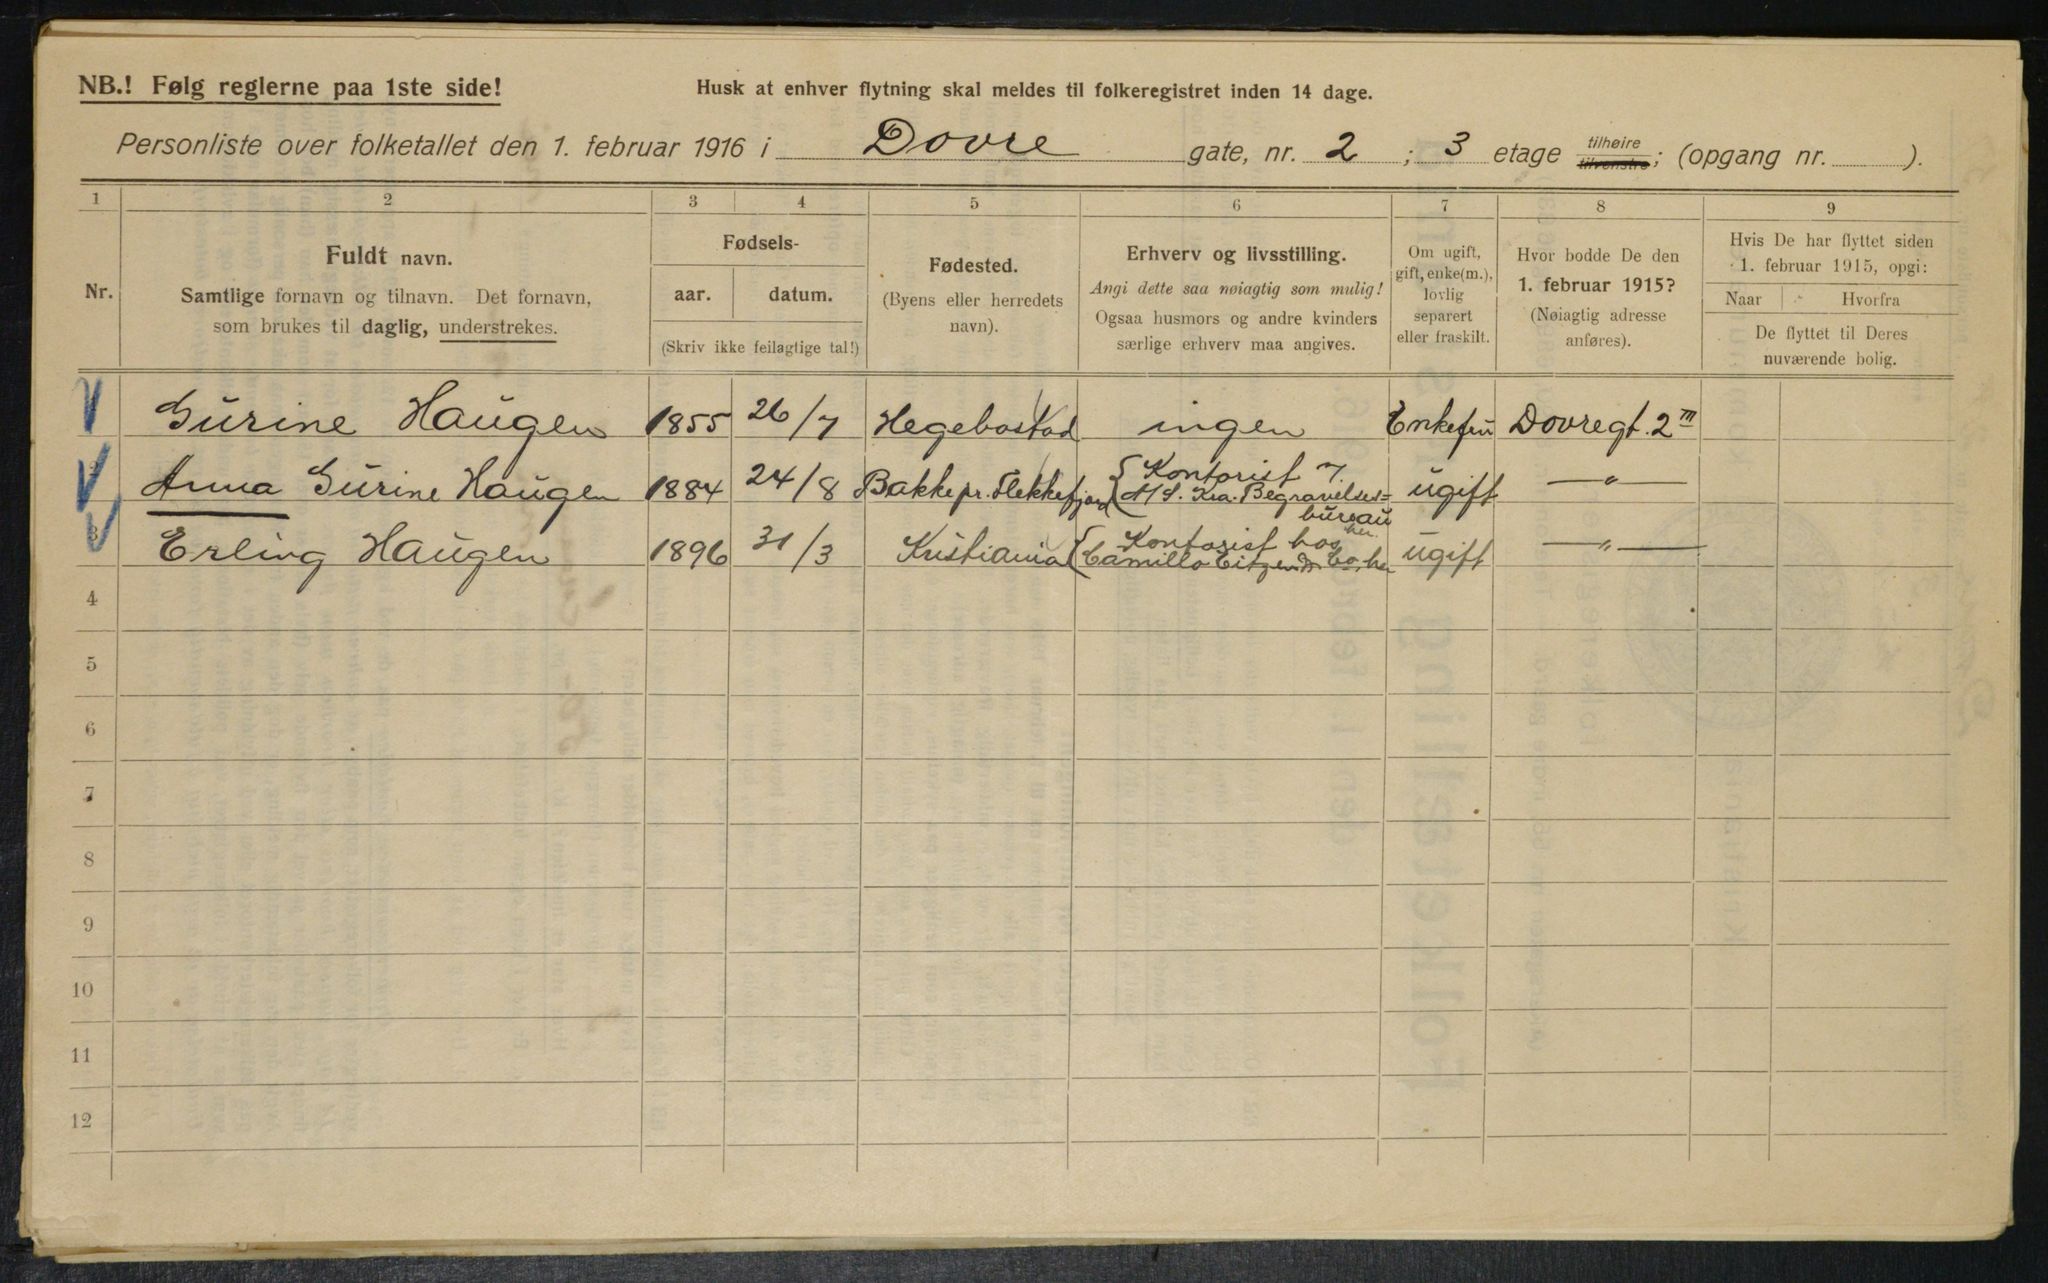 NB.! Følg reglerne paa 1ste side!
Husk at enhver flytning skal meldes til folkeregistret inden 14 dage.
Personliste over folketallet den 1. februar 1916 i Dovre gate, nr. 2 ; 3 etage tilhøire tilvenstre; (opgang nr. ).
1 2 3 4 5 6 7 8 9
Nr.
Fuldt navn.
Samtlige fornavn og tilnavn. Det fornavn,
som brukes til daglig, understrekes.
Fødsels-
aar. datum.
(Skriv ikke feilagtige tal!)
Fødested.
(Byens eller herredets
navn).
Erhverv og livsstilling.
Angi dette saa nøiagtig som mulig!
Ogsaa husmors og andre kvinders
særlige erhverv maa angives.
Om ugift,
gift, enke(m.),
lovlig
separert
eller fraskilt.
Hvor bodde De den
1. februar 1915?
(Nøiagtig adresse
anføres).
Hvis De har flyttet siden
1. februar 1915, opgi:
Naar Hvorfra
De flyttet til Deres
nuværende bolig.
Gurine Haugen 1855 26/7 Hegebostad ingen Enkefru Dovregt. 2 III
2 Anna Gurine Haugen 1884 24/8 Bakke pr. Flekkefjord Kontorist
A/S. Kra. Begravelses=
bureau ugift —„—
3 Erling Haugen 1896 31/3 Kristiania Kontorist hos
her.
Camillo Eitzen & Co, her ugift —„—
4
5
6
7
8
9
10
11
12